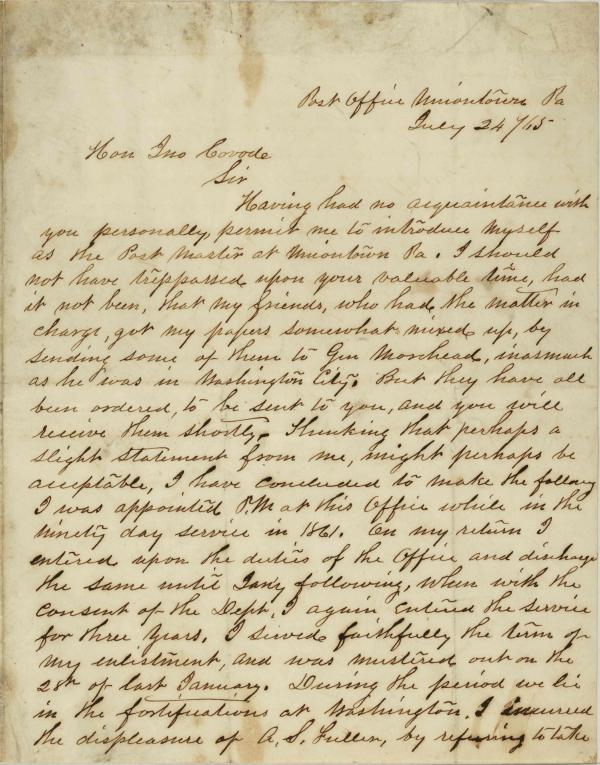 Post Office Uniontown Pa
July 24/65
Hon Jno Covode
Sir
Having had no acquaintance with
you personally, permit me to introduce myself
as the Post Master at Uniontown Pa. I should
not have trespassed upon your valuable time, had
it not been, that my friends, who had the matter in
charge, got my papers somewhat mixed up, by
sending some of them to Gen Moorhead, inasmuch
as he was in Washington City. But they have all
been ordered, to be sent to you, and you will
receive them shortly. Thinking that perhaps a
slight statement from me, might perhaps be
acceptable, I have concluded to make the following
I was appointed P.M at this Office while in the
ninety day service in 1861. On my return I
entered upon the duties of the Office and discharge
the same until Jany following, when with the
consent of the Dept, I again entered the service
for three years. I served faithfully the term of
my enlistment, and was mustered out on the
28th of last January. During the period we lie
in the fortifications at Washington, I incurred
the displeasure of A. S. Fuller, by refusing to take